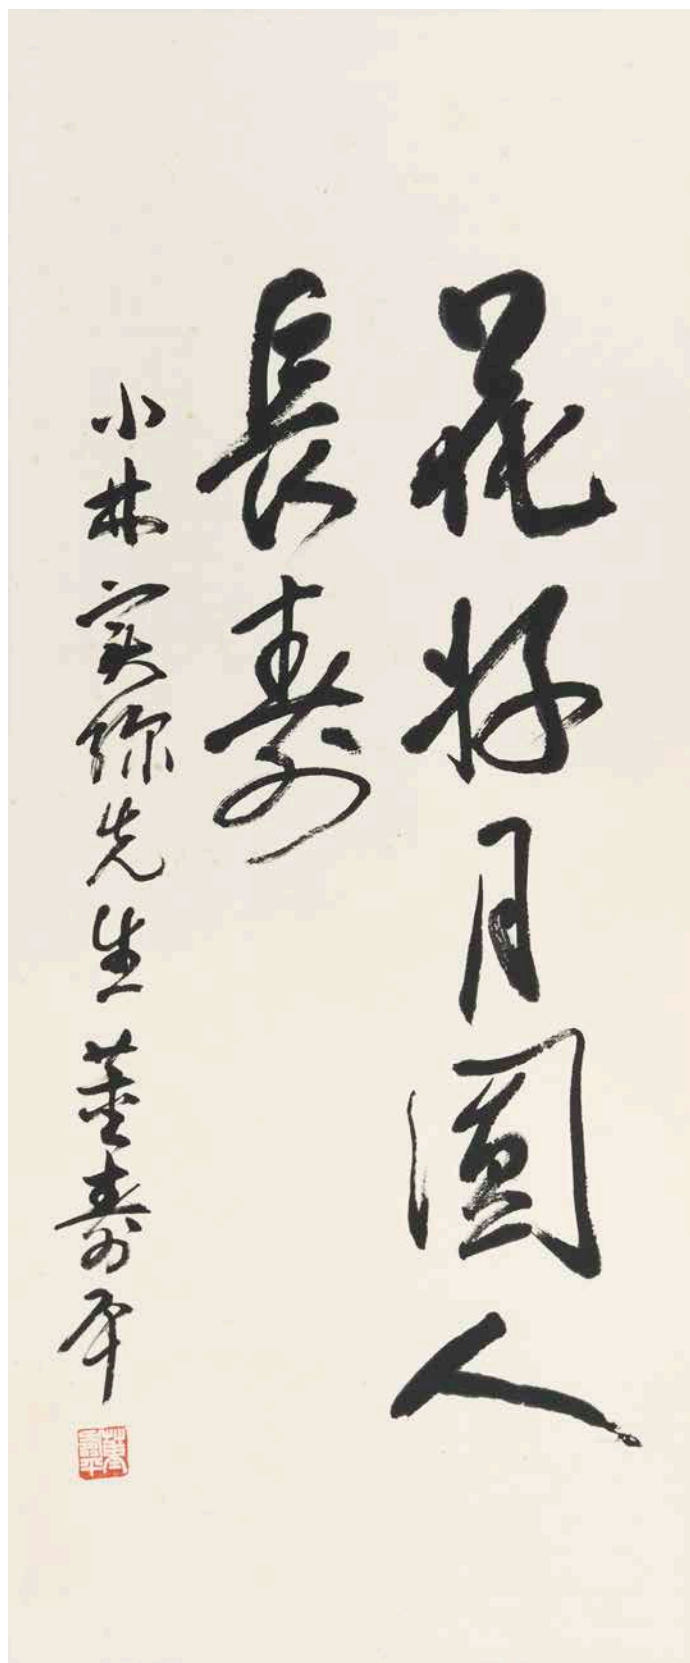 花好月圓人
長壽
小林实弥先生 董壽平
董壽平